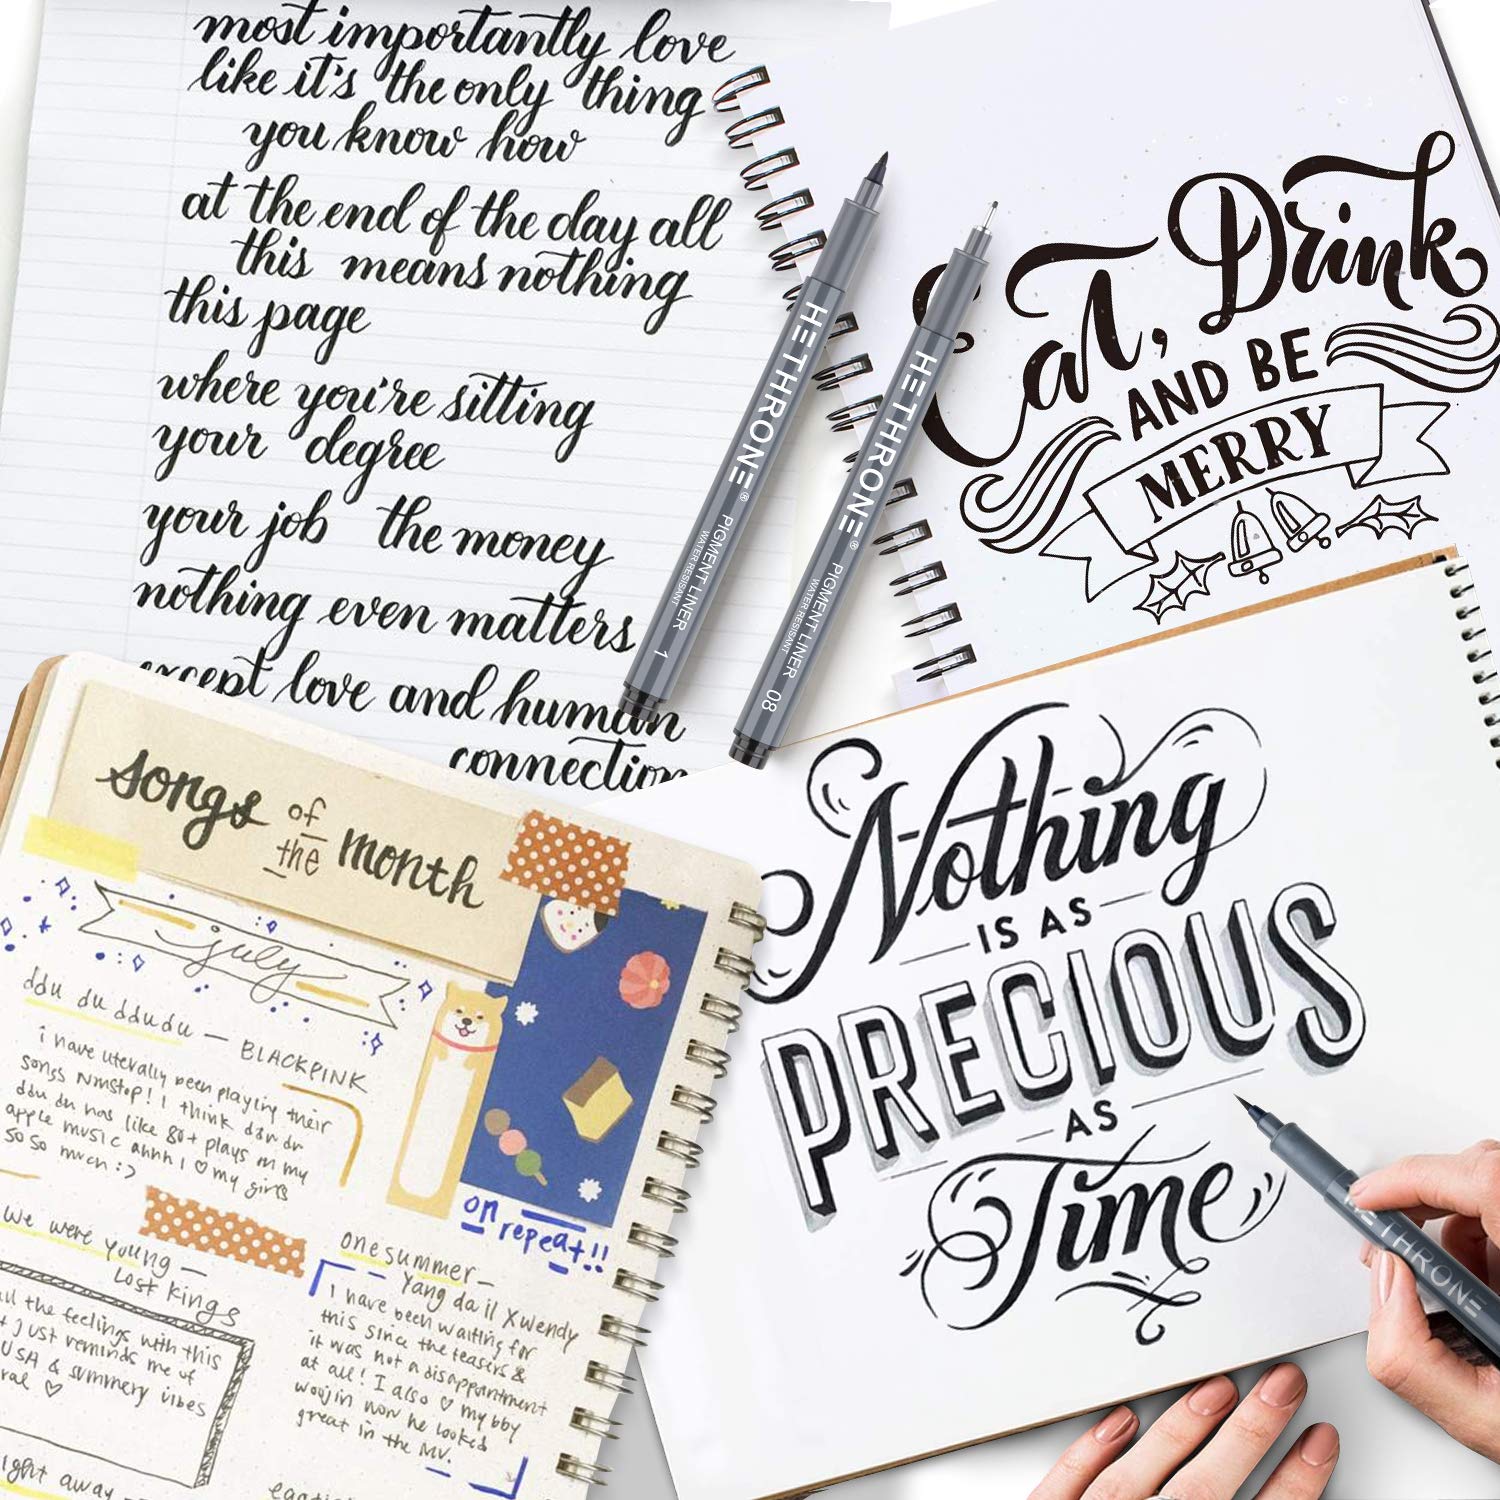 most importantly love
like it's the only thing
you know how
at the end of the day all
this means nothing
this page
where you're sitting
your degree
your job the money
nothing even matters
except love and human
connection
HETHRONE®
PIGMENT LINER
WATER RESISANT
1
HETHRONE®
PIGMENT LINER
WATER RESISANT
08
Eat, Drink
AND BE
MERRY
songs of the month
july
ddu du ddudu — BLACKPINK
i have literally been playing their
songs nonstop! I think ddu du
ddu du has like 80+ plays on my
apple music ahhh I ♡ my girls
so so much :)
on repeat!!
We were young —
Lost kings
all the feelings with this
just reminds me of
USA & summery vibes
♡
ight away —
one summer —
Yang da il X wendy
I have been waiting for
this since the teasers &
it was not a disappointment
at all! I also ♡ my bby
woojin wow he looked
great in the MV.
Nothing
IS AS
PRECIOUS
AS
Time
HETHRONE